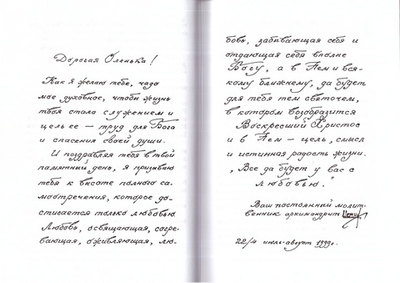 Дорогая Оленька!
Как я желаю тебе, чадо
мое духовное, чтобы жизнь
твоя стала служением и
цель ее — труд для Бога
и спасения своей души.
И поздравляя тебя в твой
памятный день, я призываю
тебя к высоте полного са-
моотречения, которое до-
стигается только любовью.
Любовь, освящающая, согре-
вающая, оживляющая, лю-
бовь, забывающая себя и
отдающая себя вполне
Богу, а в Нем и вся-
кому ближнему, да будет
для тебя тем светочем,
в котором вообразится
Воскресший Христос
и в Нем — цель, смысл
и истинная радость жизни.
„Все да будет у вас с
любовью."
Ваш постоянный молит-
венник архимандрит
22/4 июль-август 1999г.